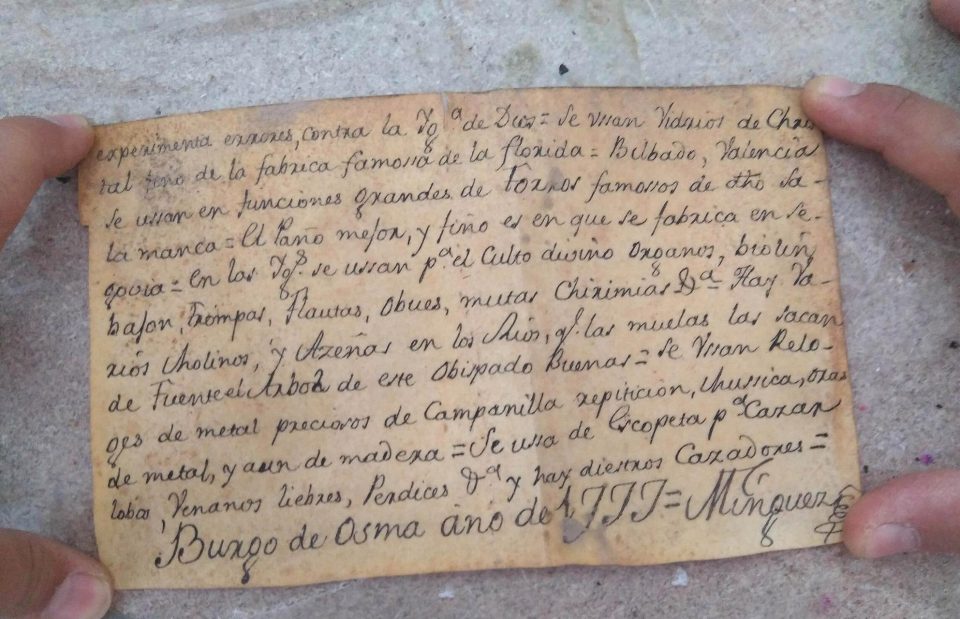 experimenta errores, contra la Ygª de Dios = Se ussan Vidrios de Chris
tal fino de la fabrica famossa de la florida = Bilbado, Valencia
se ussan en funciones grandes de Torros famossos de dho Sa-
lamanca = El Paño mejor, y fino es en que se fabrica en Se-
govia = En las Ygs. se ussan pª el Culto divino Organos, biolin,
bajon, trompas, Flautas, Obues, mutas Chirimias &ª = Hay Va-
rios Molinos, y Azeñas en los Rios, q. las muelas las sacan
de Fuente el Arbol de este Obispado Buenas = Se Ussan Relo-
ges de metal preciosos de Campanilla repiticion, Mussica, otras
de metal, y aun de madera = Se ussa de Escopeta pª Cazar
lobos, Venanos liebres, Perdices &ª y hay diestros Cazadores =
Burgo de Osma año de 1777 = Mĩnguez